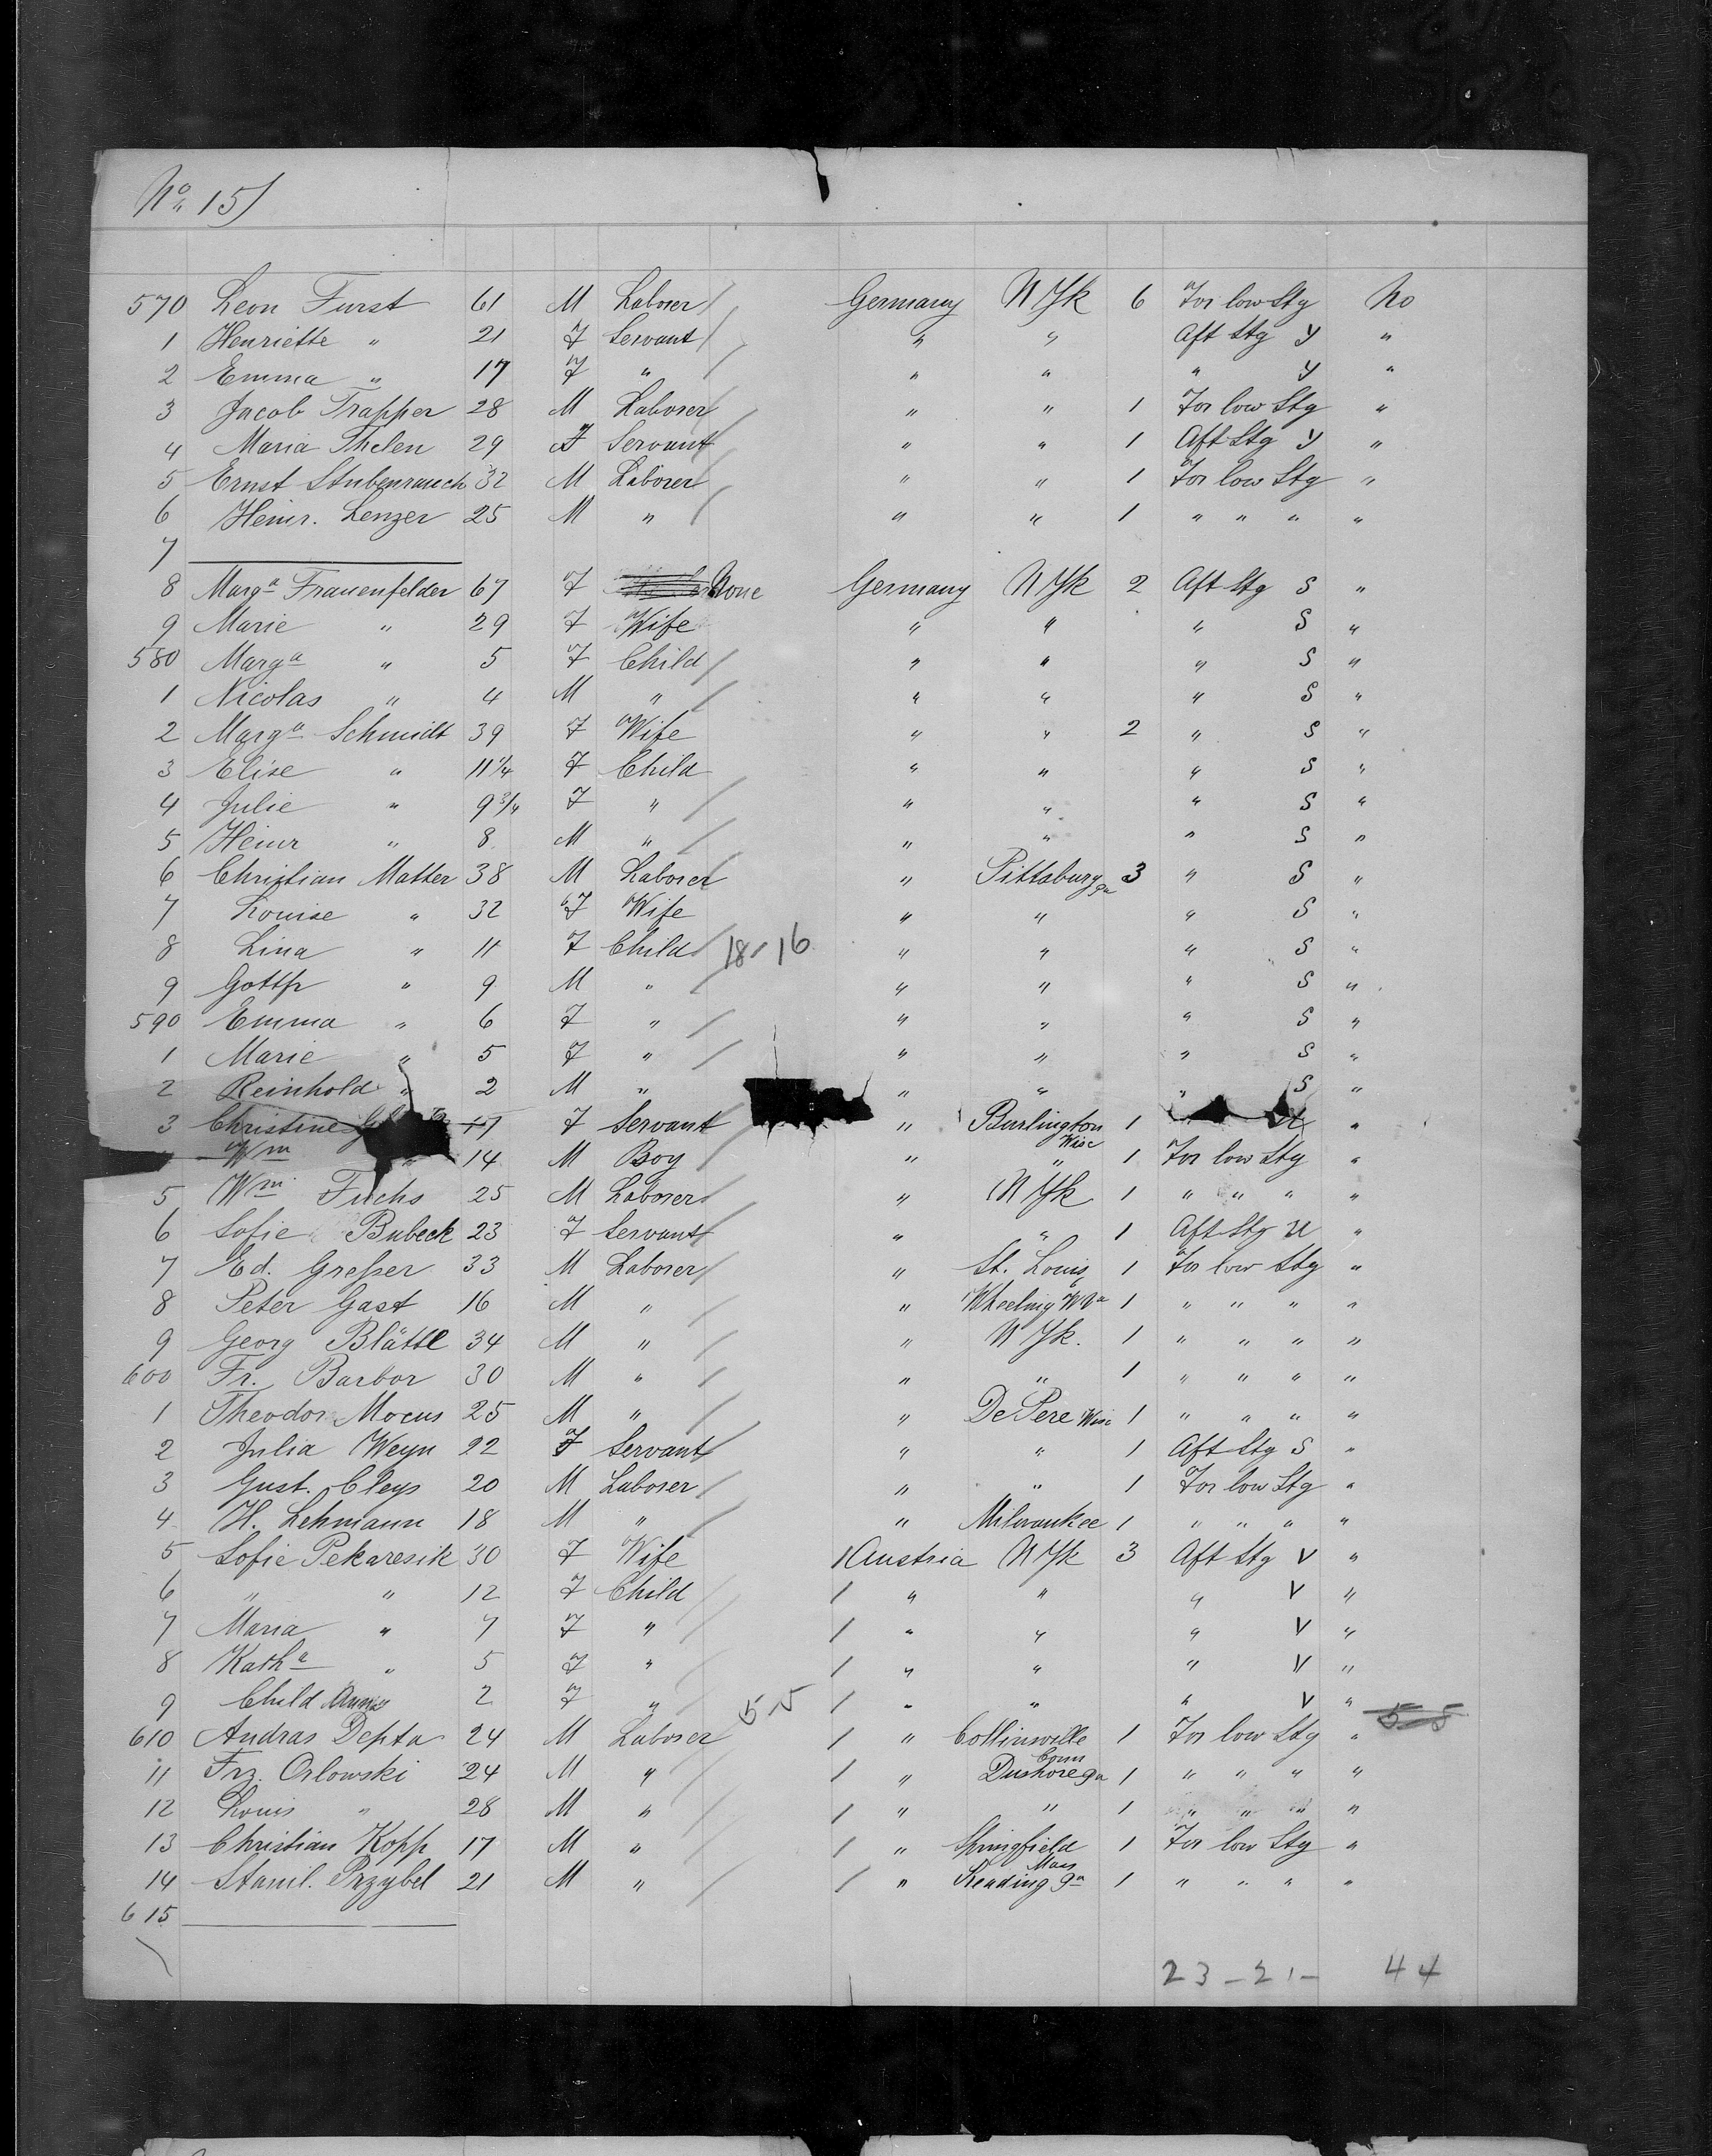 No. 15)
570 Leon Furst 61 M Laborer Germany N Yk 6 For low Stg No
1 Henriette " 21 F Servant " " Aft Stg y "
2 Emma " 17 F " " " " y "
3 Jacob Trapper 28 M Laborer " " 1 For low Stg "
4 Maria Thelen 29 F Servant " " 1 Aft Stg y "
5 Ernst Stubenrauch 32 M Laborer " " 1 For low Stg "
6 Heinr. Lenzer 25 M " " " 1 " " " "
7
8 Marga Frauenfelder 67 F None Germany N Yk 2 Aft Stg S "
9 Marie " 29 F Wife " " " S "
580 Marga " 5 F Child " " " S "
1 Nicolas " 4 M " " " " S "
2 Marga Schmidt 39 F Wife " " 2 " S "
3 Elise " 11 1/4 F Child " " " S "
4 Julie " 9 3/4 F " " " " S "
5 Heinr " 8 M " " " " S "
6 Christian Matter 38 M Laborer " Pittsburg Pa 3 " S "
7 Louise " 32 F Wife " " " S "
8 Lina " 11 F Child 18-16 " " " S "
9 Gottfr " 9 M " " " " S "
590 Emma " 6 F " " " " S "
1 Marie " 5 F " " " " S "
2 Reinhold " 2 M " " " " S "
3 Christine 17 F Servant " Burlington Wisc 1 "
Wm " 14 M Boy " " 1 For low Stg "
5 Wm Fuchs 25 M Laborer " N Yk 1 " " " "
6 Sofie Bubeck 23 F Servant " " 1 Aft Stg U "
7 Ed. Greßer 33 M Laborer " St. Louis 1 For low Stg "
8 Peter Gast 16 M " " Wheeling W Va 1 " " " "
9 Georg Blättl 34 M " " N Yk. 1 " " " "
600 Fr. Barbor 30 M " " " 1 " " " "
1 Theodor Mocus 25 M " " De Pere Wisc 1 " " " "
2 Julia Weyn 22 F Servant " " 1 Aft Stg S "
3 Gust. Cleys 20 M Laborer " " 1 For low Stg "
4 H. Lehmann 18 M " " Milwaukee 1 " " " "
5 Sofie Pekaresik 30 F Wife 1 Austria N Yk 3 Aft Stg V "
6 " " 12 F Child 1 " " " V "
7 Maria " 7 F " 1 " " " V "
8 Katha " 5 F " 1 " " " V "
9 Child Anna 2 F " 5 5 1 " " " V " 5-5
610 Andras Depta 24 M Laborer 1 " Collinsville Conn 1 For low Stg "
11 Frz. Orlowski 24 M " 1 " Dushore Pa 1 " " " "
12 Louis " 28 M " 1 " " 1 " " " "
13 Christian Kopp 17 M " 1 " Springfield Mass 1 For low Stg "
14 Stanil. Przybel 21 M " 1 " Reading Pa 1 " " " "
615
23-21- 44